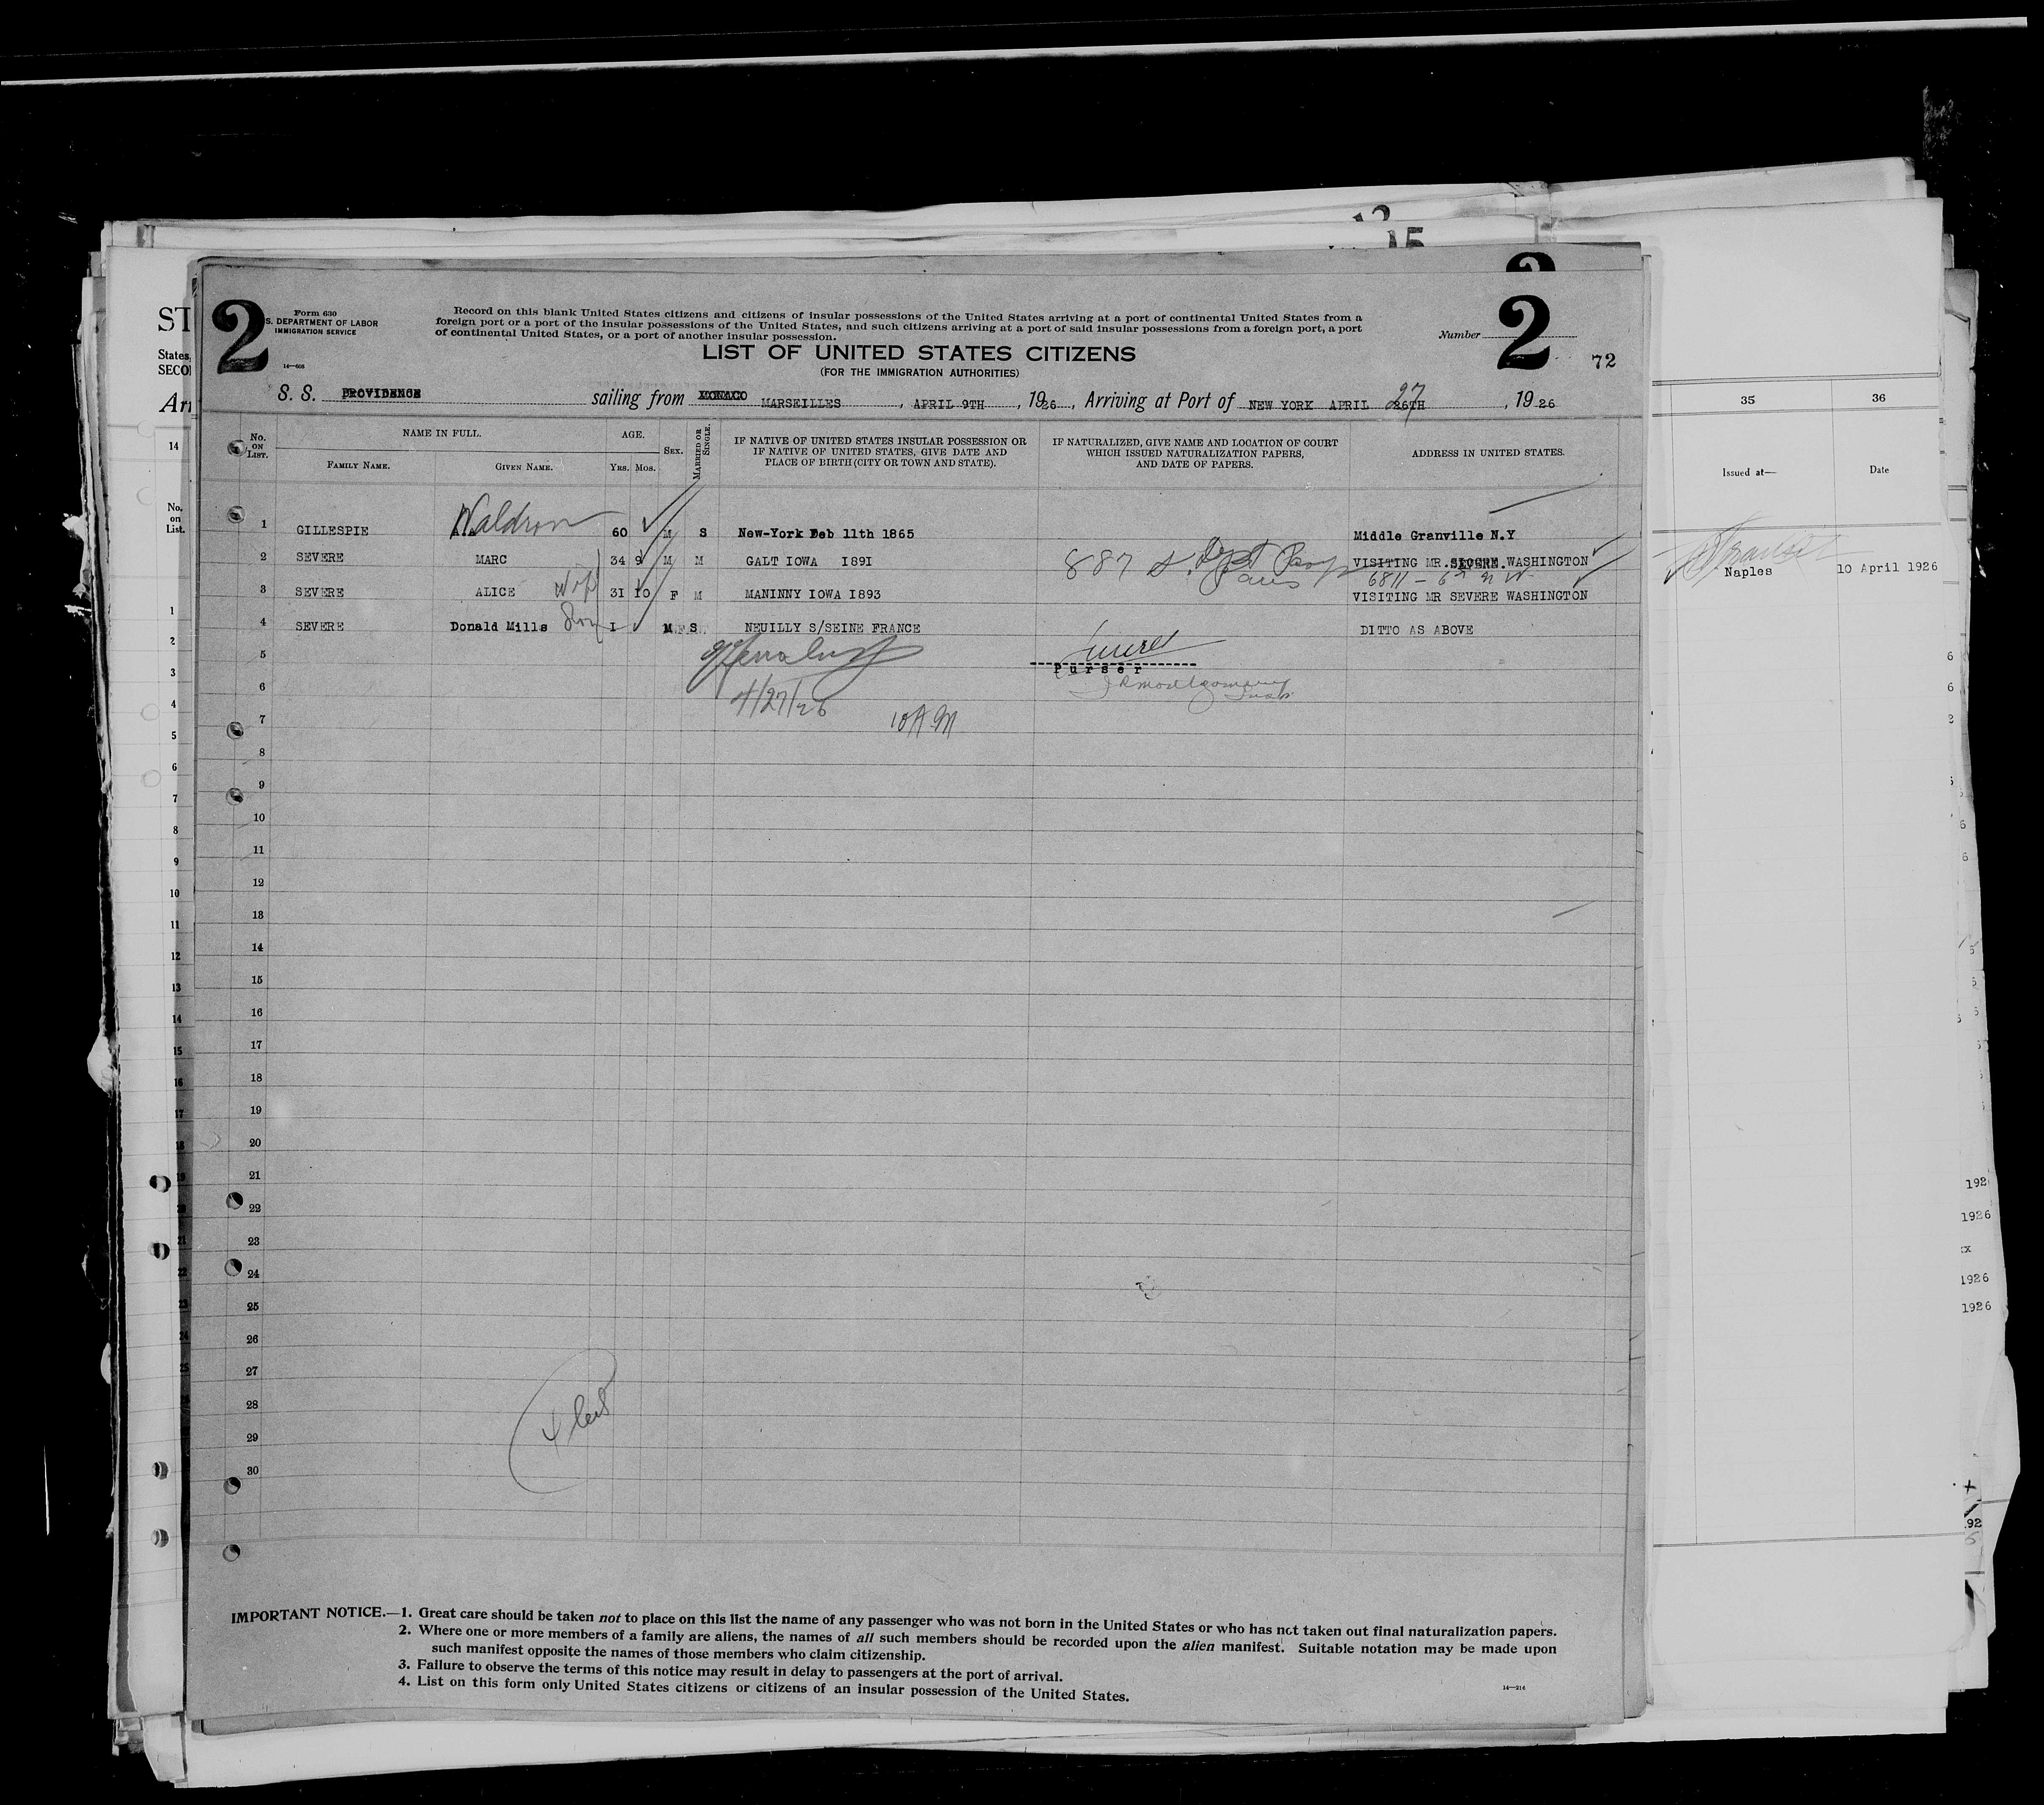 15
2
2
Form 630
S. DEPARTMENT OF LABOR
IMMIGRATION SERVICE
14—608
Record on this blank United States citizens and citizens of insular possessions of the United States arriving at a port of continental United States from a
foreign port or a port of the insular possessions of the United States, and such citizens arriving at a port of said insular possessions from a foreign port, a port
of continental United States, or a port of another insular possession.
LIST OF UNITED STATES CITIZENS
(FOR THE IMMIGRATION AUTHORITIES)
Number 2
72
S. S. PROVIDENCE sailing from MONACO MARSEILLES, APRIL 9TH, 1926, Arriving at Port of NEW YORK APRIL 26TH 27, 1926
No. on List. NAME IN FULL. AGE. Sex. Married or Single. IF NATIVE OF UNITED STATES INSULAR POSSESSION OR IF NATIVE OF UNITED STATES, GIVE DATE AND PLACE OF BIRTH (CITY OR TOWN AND STATE). IF NATURALIZED, GIVE NAME AND LOCATION OF COURT WHICH ISSUED NATURALIZATION PAPERS, AND DATE OF PAPERS. ADDRESS IN UNITED STATES.
Family Name. Given Name. Yrs. Mos.
1 GILLESPIE Waldron 60 M S New-York Feb 11th 1865 Middle Granville N.Y
2 SEVERE MARC 34 9 M M GALT IOWA I89I 887 Paris VISITING MR. SEVERE. WASHINGTON
6811 - 6th
3 SEVERE ALICE Wife 3I IO F M MANINNY IOWA I893 VISITING MR SEVERE WASHINGTON
4 SEVERE Donald Mills Son I M S NEUILLY S/SEINE FRANCE DITTO AS ABOVE
5
Purser
6 JRMontgomery Insp.
4/27/26 10 AM
7
8
9
10
11
12
13
14
15
16
17
18
19
20
21
22
23
24
25
26
27
28
29
30
IMPORTANT NOTICE.—1. Great care should be taken not to place on this list the name of any passenger who was not born in the United States or who has not taken out final naturalization papers.
2. Where one or more members of a family are aliens, the names of all such members should be recorded upon the alien manifest. Suitable notation may be made upon
such manifest opposite the names of those members who claim citizenship.
3. Failure to observe the terms of this notice may result in delay to passengers at the port of arrival.
4. List on this form only United States citizens or citizens of an insular possession of the United States.
14—214
35 36
Issued at— Date
Naples 10 April 1926
1926
1926
1926
ST
States,
SECO
Arr
14
No.
on
List.
1
2
3
4
5
6
7
8
9
10
11
12
13
14
15
16
17